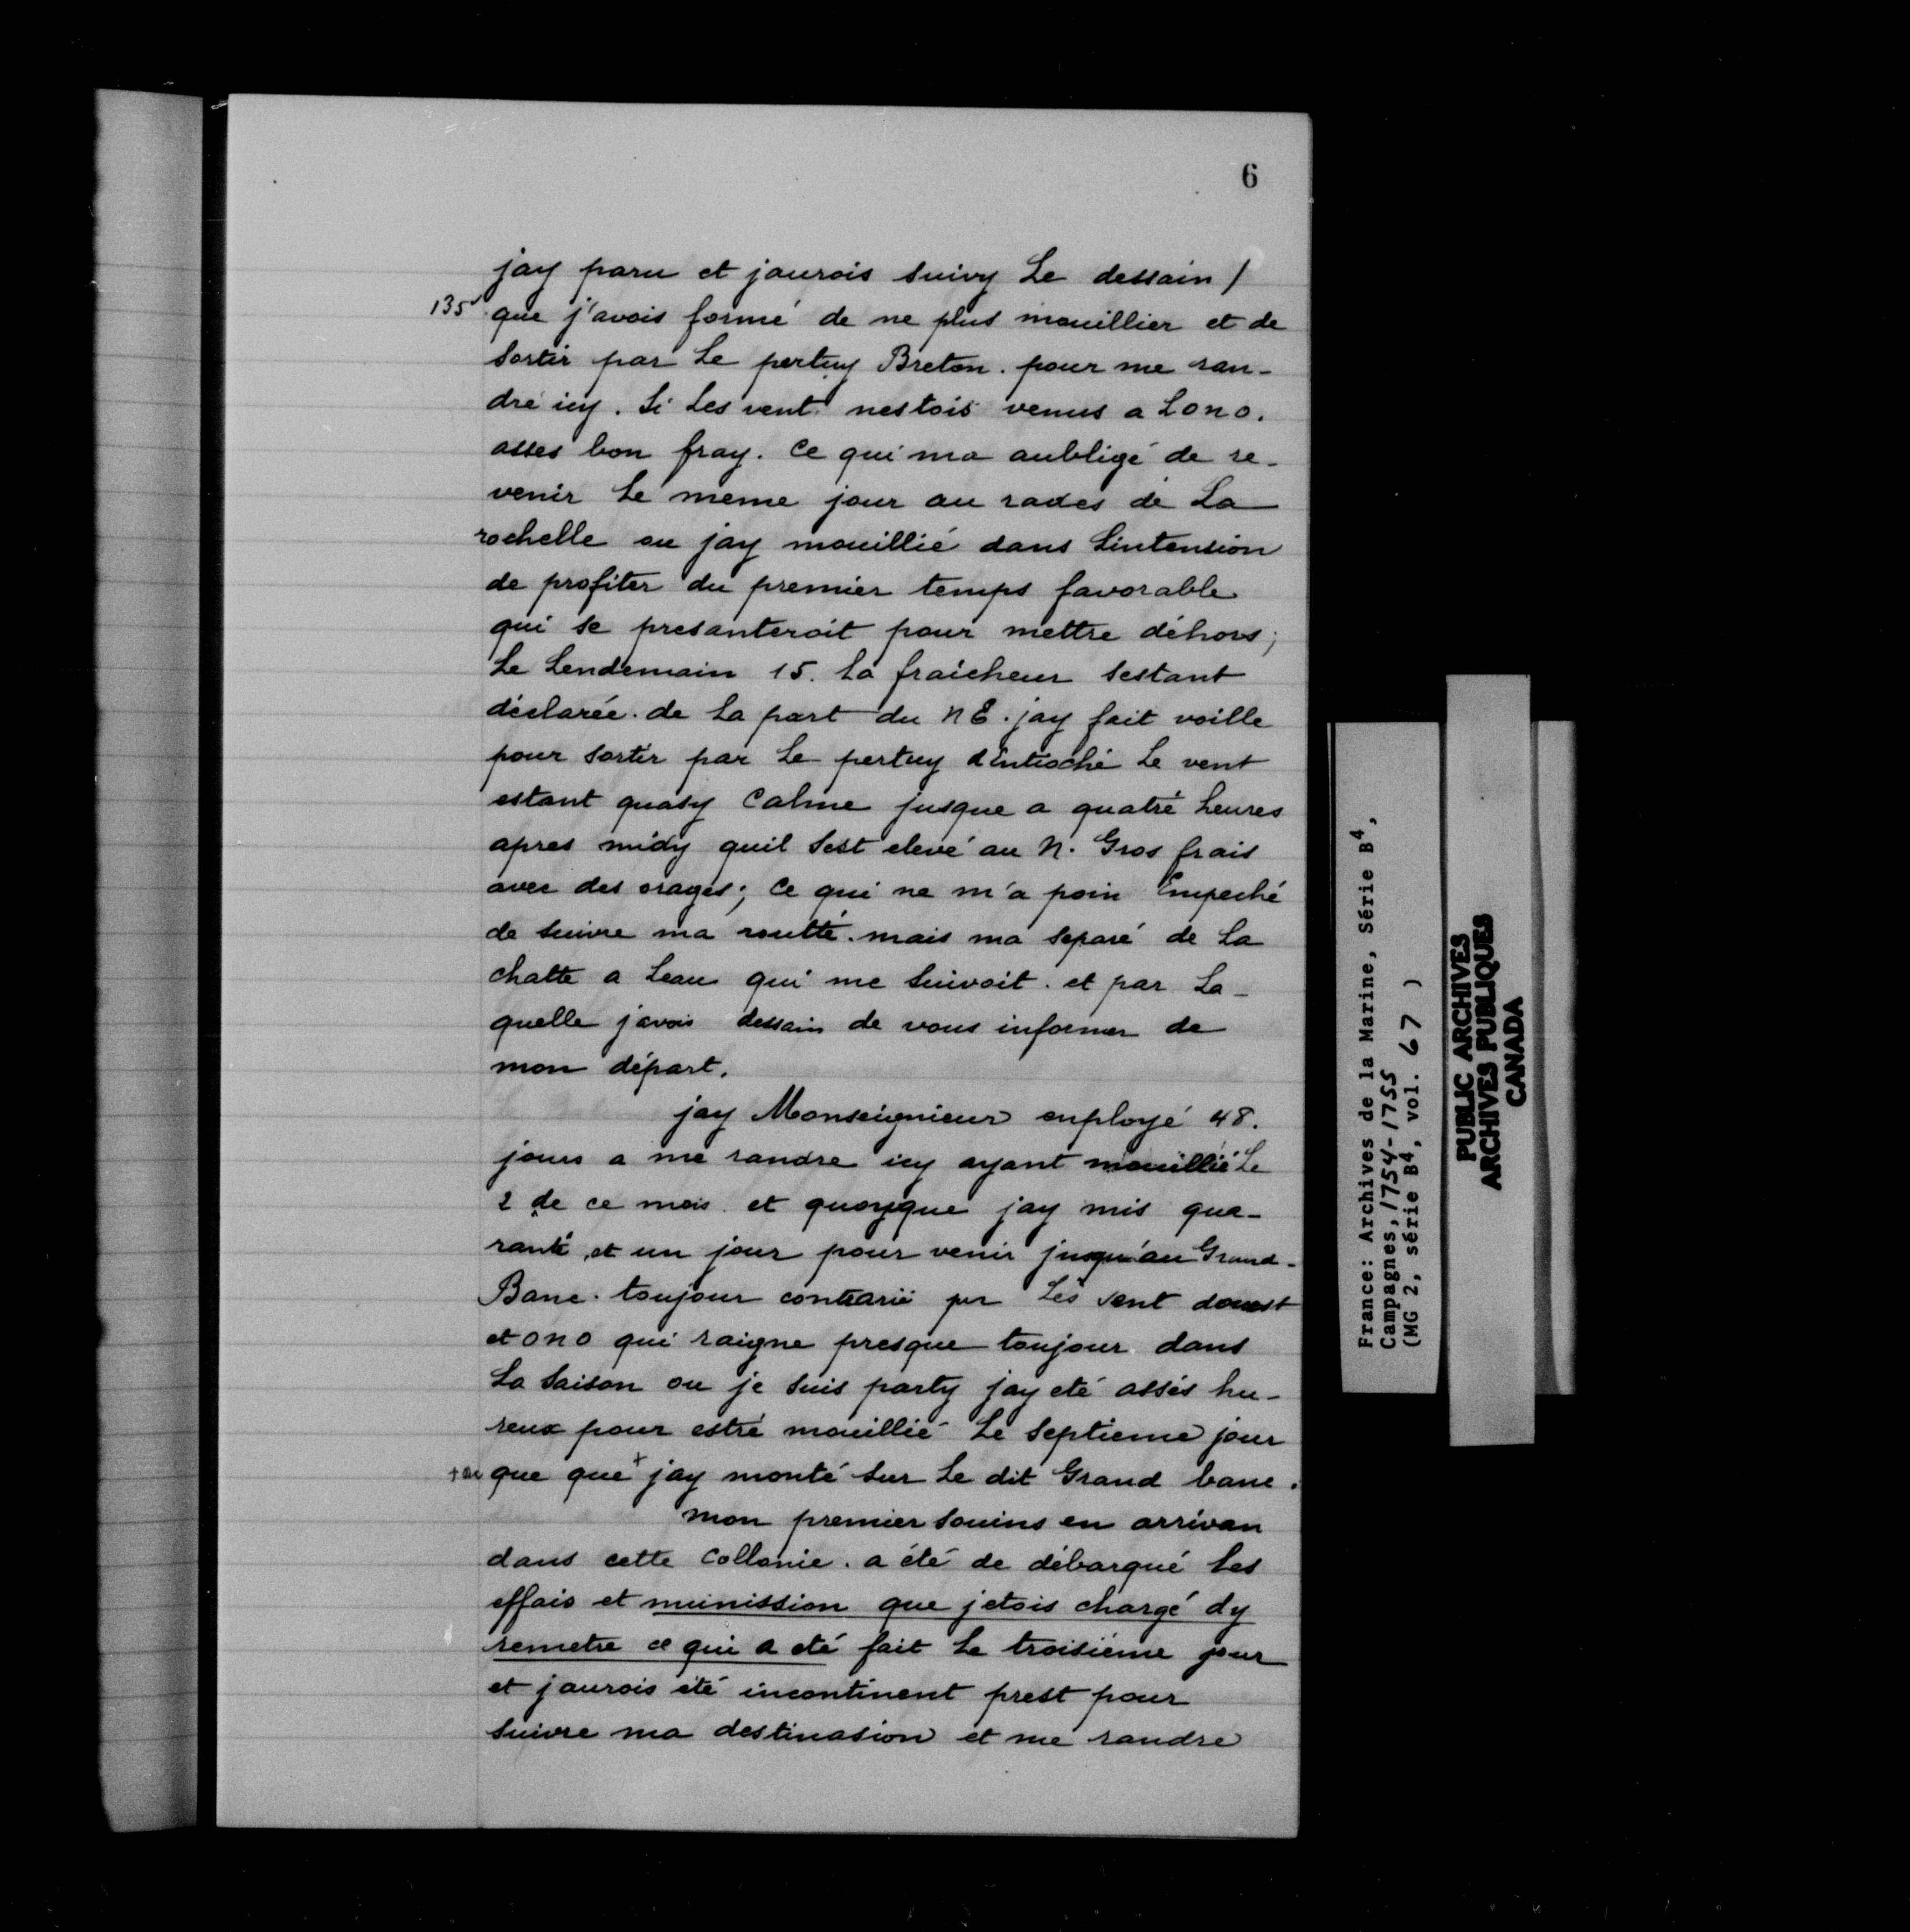 6
jay paru et jaurois suivy Le dessain /
135 que j'avois formé de ne plus mouillier et de
sortir par Le pertuy Breton. pour me ran-
dre icy. Si Les vent nestois venus a Lono.
asses bon fray. Ce qui ma aubligé de re-
venir Le meme jour au rades de La
rochelle ou jay mouillié dans Lintension
de profiter du premier temps favorable
qui se presanteroit pour mettre déhors;
Le Lendemain 15. La fraicheur sestant
déclarée. de La part du n E. jay fait voille
pour sortir par Le pertuy d'Entioche Le vent
estant quasy Calme jusque a quatre heures
apres midy quil sest elevé au N. Gros frais
avec des orages; Ce qui ne m'a poin Empeché
de suivre ma routte. mais ma separé de La
chatte a Leau qui me suivoit. et par La-
quelle javois dessain de vous informer de
mon départ.
jay Monseignieur enployé 48.
jours a me randre icy ayant mouillié Le
2 de ce mois. et quoyque jay mis qua-
rante et un jour pour venir jusqu'au Grand-
Banc. toujour contrarié par Les vent douest
et ono qui raigne presque toujour dans
La saison ou je suis party jay eté assés hu-
reux pour estre mouillié Le septieme jour
+ que que + jay monté sur Le dit Grand banc.
mon premier souins en arrivan
dans cette Collonie. a été de débarqué Les
effais et munission que jetois chargé dy
remetre ce qui a eté fait Le troisiéme jour
et jaurois été incontinent prest pour
suivre ma destinasion et me randre
France: Archives de la Marine, Série B4,
Campagnes, 1754-1755
(MG 2, série B4, vol. 67 )
PUBLIC ARCHIVES
ARCHIVES PUBLIQUES
CANADA